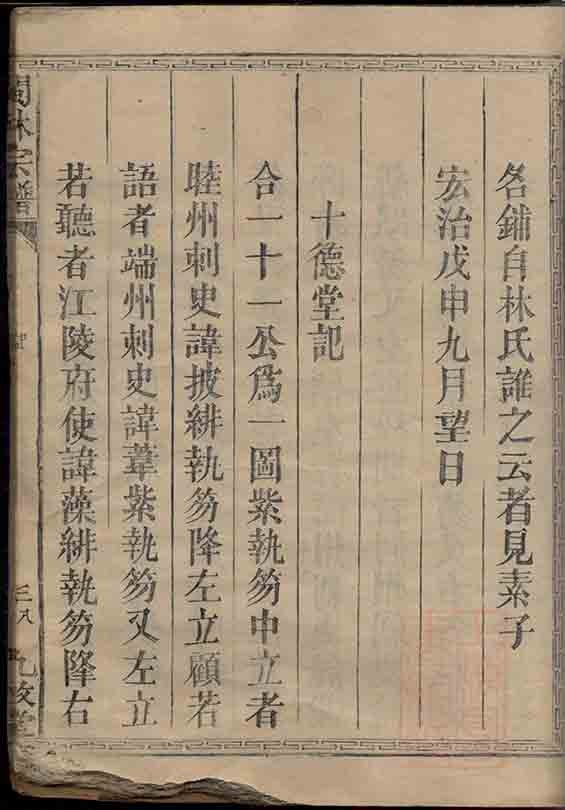 各鋪自林氏誰之云者見素子
宏治戊申九月望日
十德堂記
合一十一公爲一圖紫執笏中立者
睦州刺史諱披緋執笏降左立顧若
語者端州刺史諱葦紫執笏又左立
若聽者江陵府使諱藻緋執笏降右
林宗譜
三八
九牧堂